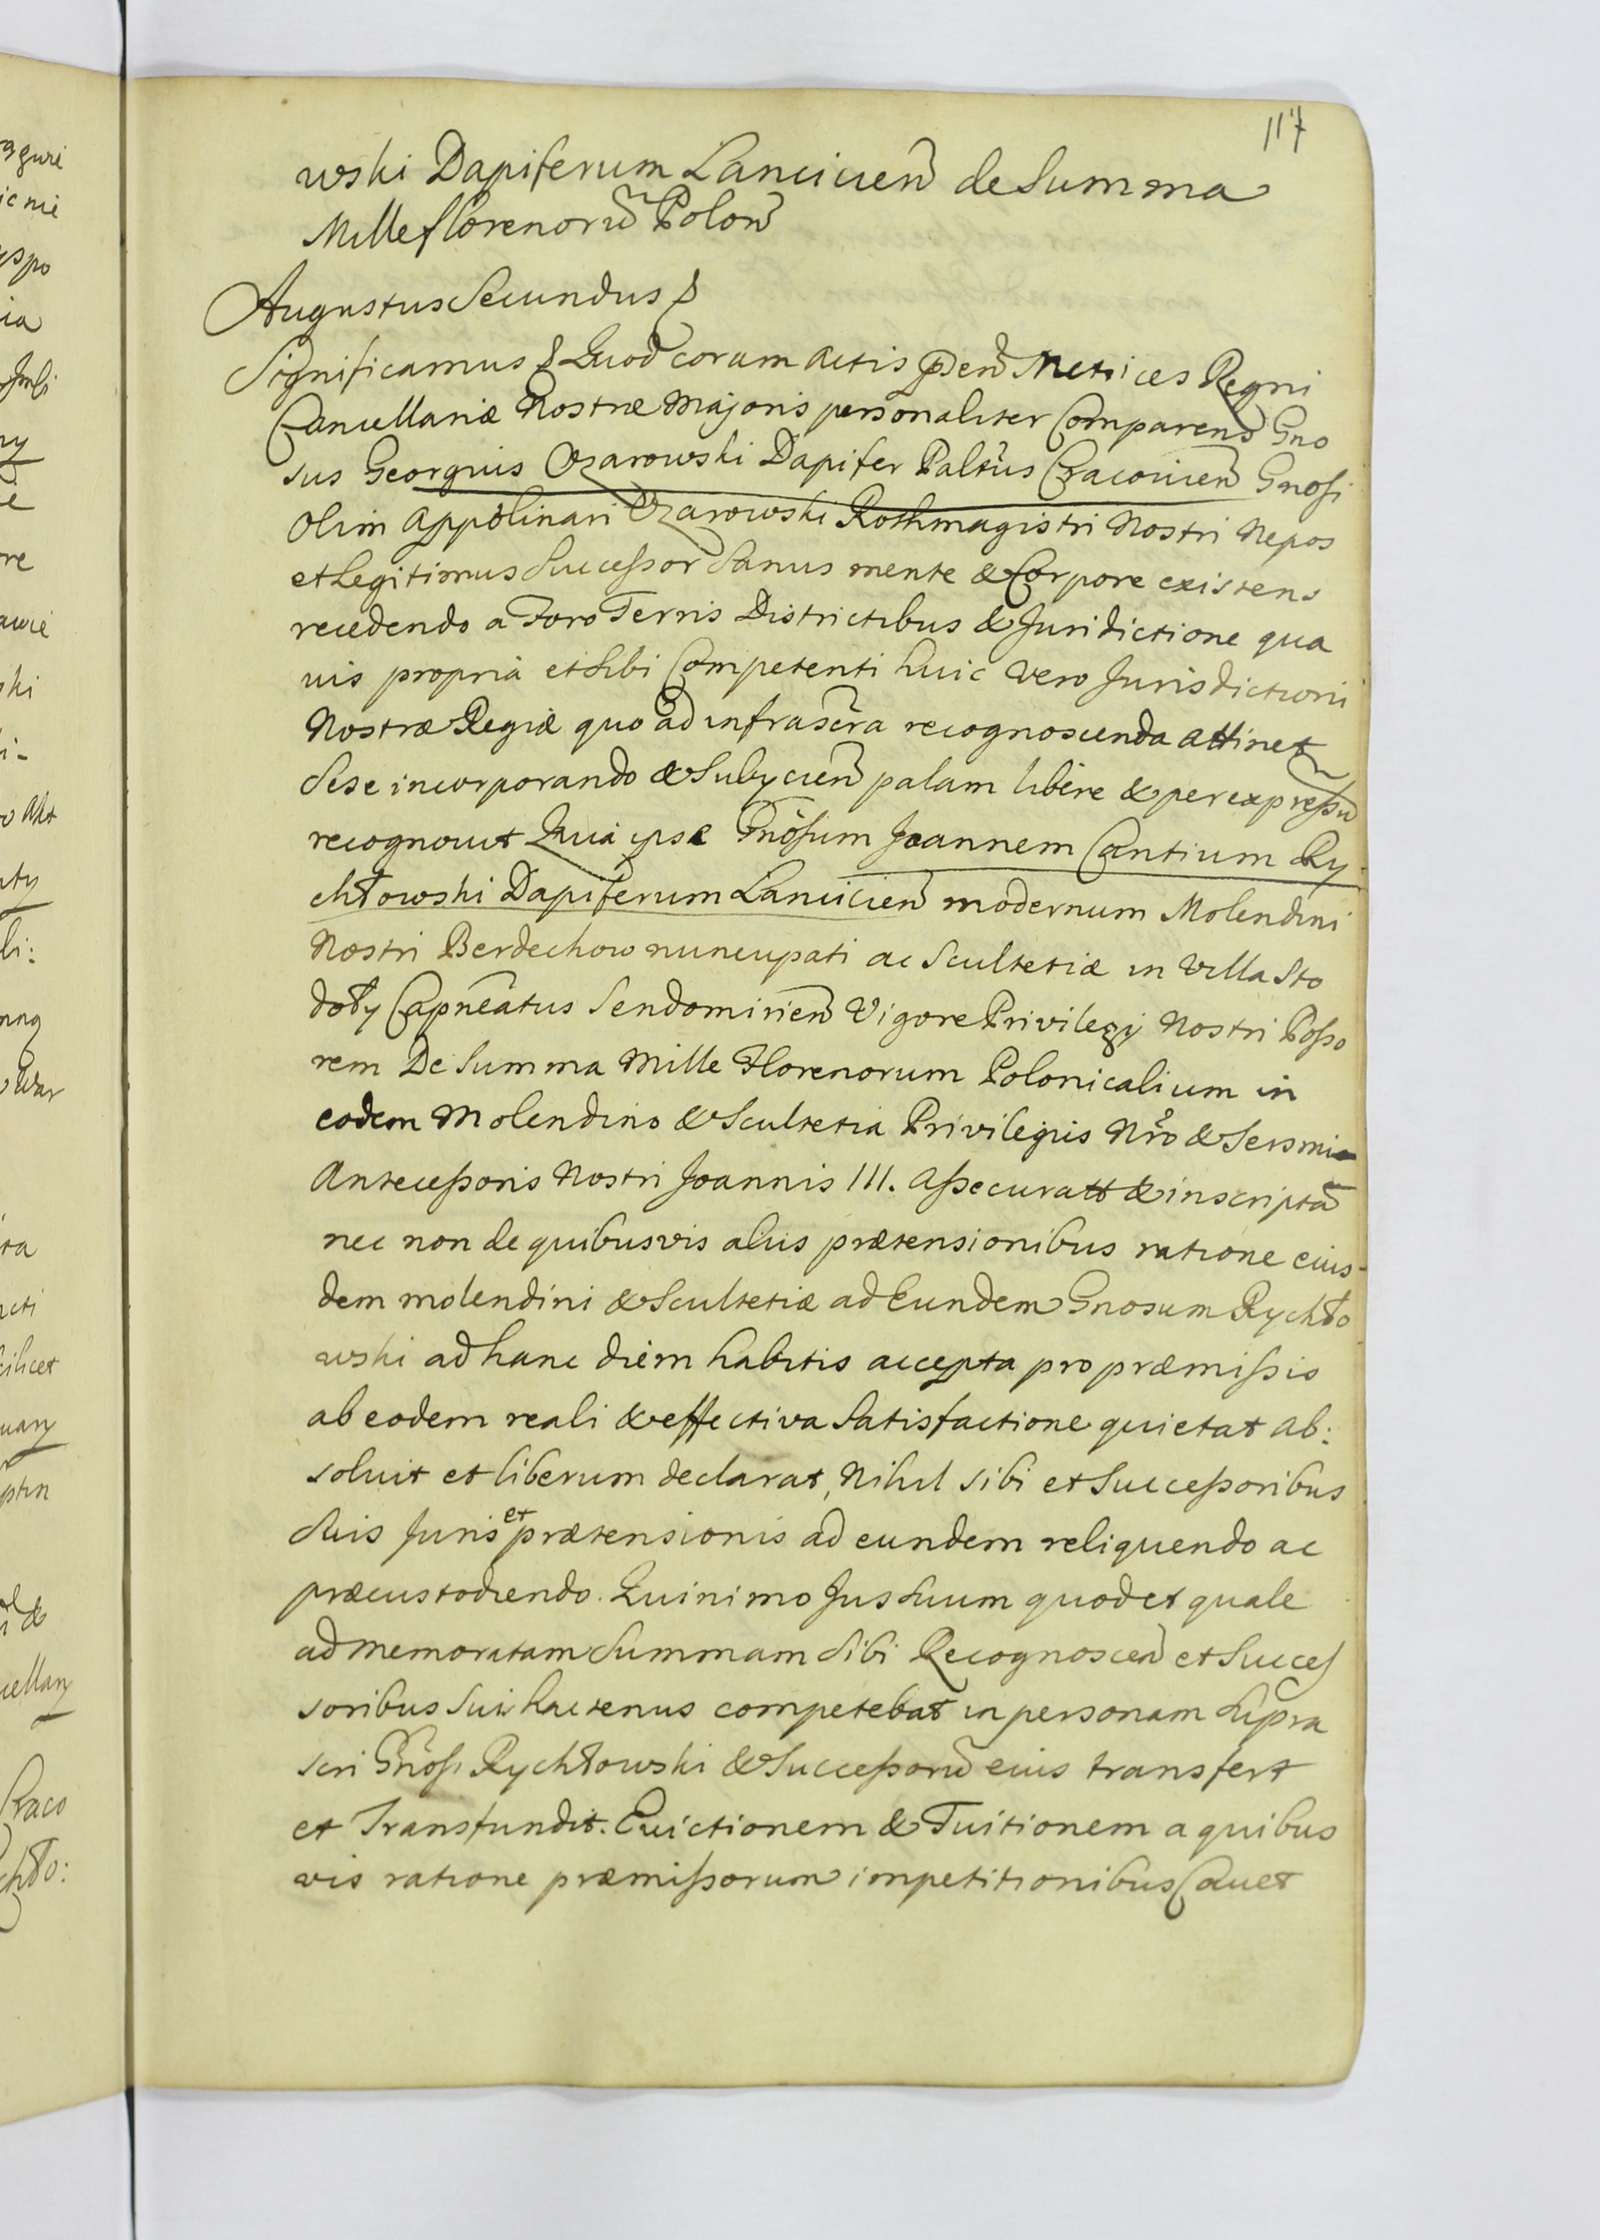 117
wski Dapiferum Lancicien̄ de Summa
Mille florenorū Polon̄
Augustus Secundus &
Significamus & Quod coram Actis p̄sen̄ Metrices Regni
Cancellariæ Nostræ Majoris personaliter Comparens Gno
sus Georgius Ozarowski Dapifer Paltūs Cracovien̄ Gnosi
Olim Appolinari Ozarowski Rothmagistri Nostri Nepos
et Legitimus Successor Sanus mente & Corpore existens
recedendo a Foro Terris Districtibus & Juridictione qua
vis propriâ et Sibi Competenti huic vero Jurisdictioni
Nostræ Regiæ quo ad infrascr̄a recognoscenda attinet
Sese incorporando & Subycien̄ palam libere & per expressū
recognovit Quia ipse Gnōsum Joannem Cantium Ry
chłowski Dapiferum Lancicien̄ modernum Molendini
Nostri Berdechow nuncupati ac Scultetiæ in Villa Sto
doły Capnēatus Sendomirien̄ Vigore Privilegy Nostri Posso
rem De Summa Mille Florenorum Polonicalium in
eodem Molendino & Scultetia Privilegiis Nr̄o & Sersmi
Antecessoris Nostri Joannis III. Assecuratt & inscriptā
nec non de quibusvis aliis prætensionibus ratione eius-
dem molendini & Scultetiæ ad Eundem Gnosum Rychło
wski ad hanc diem habitis accepta pro præmissis
ab eodem reali & effectiva Satisfactione quietat ab:
soluit et liberum declarat, Nihil sibi et Successoribus
Suis Juris et prætensionis ad eundem reliquendo ac
præcustodiendo. Quinimo Jus Suum quod et quale
ad memoratam Summam Sibi Recognoscen̄ et Succes
soribus Suis hactenus competebat in personam Supra
scri Gnōsi Rychłowski & Successorū eius transfert
et Transfundit. Evictionem & Tuitionem a quibus
vis ratione præmissorum impetitionibus Cavet